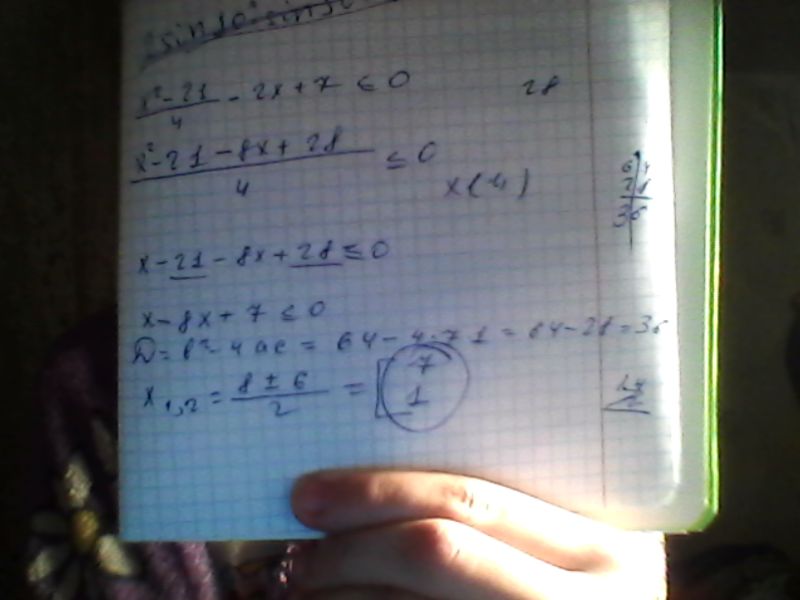 x² - 21 / 4 - 2x + 7 ≤ 0
28
x² - 21 - 8x + 28 / 4 ≤ 0
x (-4)
x - 21 - 8x + 28 ≤ 0
x - 8x + 7 ≤ 0
D = b² - 4ac = 64 - 4·7·1 = 64 - 28 = 36
x1,2 = 8 ± 6 / 2 = [ 7
1
64
28
36